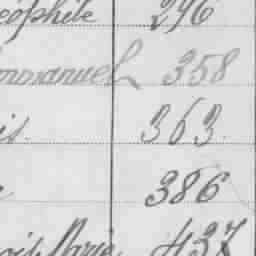 éophile 296
mmanuel 358
is. 363.
386
ois Marie 437